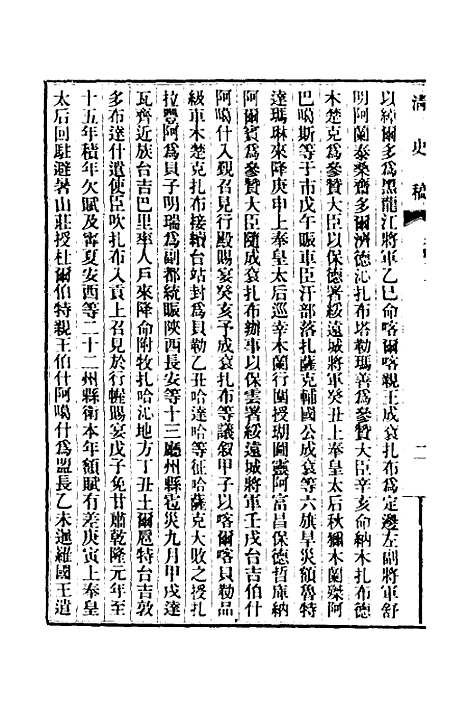 清史稿
以綽爾多爲黑龍江將軍乙巳命喀爾喀親王成袞扎布爲定邊左副將軍舒
明阿蘭泰桑齋多爾濟德沁扎布塔勒瑪善爲參贊大臣辛亥命納木扎布德
木楚克爲參贊大臣以保德署綏遠城將軍癸丑上奉皇太后秋獮木蘭磔阿
巴噶斯等于市戊午賑車臣汗部落扎薩克輔國公成袞等六旗旱災額魯特
達瑪琳來降庚申上奉皇太后巡幸木蘭行圍授瑚圖靈阿富昌保德哲庫納
阿爾賓爲參贊大臣隨成袞扎布辦事以保雲署綏遠城將軍壬戌台吉伯什
阿噶什入覲召見行殿賜宴癸亥予成袞扎布等議叙甲子以喀爾喀貝勒品
級車木楚克扎布接續台站封爲貝勒乙丑哈達哈等征哈薩克大敗之授扎
拉豐阿爲貝子明瑞爲副都統賑陝西長安等十三廳州縣雹災九月甲戌達
瓦齊近族台吉巴里率人戶來降命附牧扎哈沁地方丁丑土爾扈特台吉敦
多布達什遣使臣吹扎布入貢上召見於行幄賜宴戊子免甘肅乾隆元年至
十五年積年欠賦及寧夏安西等二十二州縣衛本年額賦有差庚寅上奉皇
太后回駐避暑山莊授杜爾伯特親王伯什阿噶什爲盟長乙未暹羅國王遣